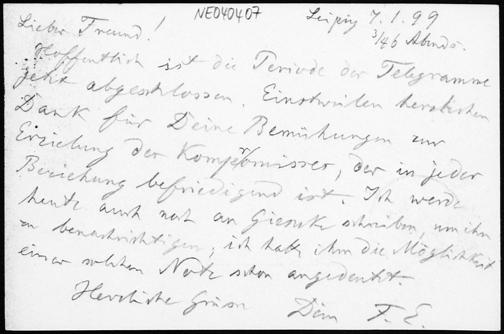 NE040407
Leipzig 7.1.99
3/46 Abends.
Lieber Freund!
Hoffentlich ist die Periode der Telegramme
jetzt abgeschlossen. Einstweilen herzlichen
Dank für Deine Bemühungen zur
Erzielung der Kompromisses, der in jeder
Beziehung befriedigend ist. Ich werde
heute auch noch an Giesecke schreiben, um ihn
zu benachrichtigen; ich habe ihm die Möglichkeit
einer solchen Notiz schon angedeutet.
Herzliche Grüsse Dein F. E.